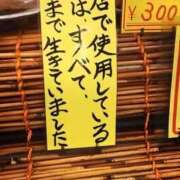 店で使用している
はすべて、
まで生きていました
¥300